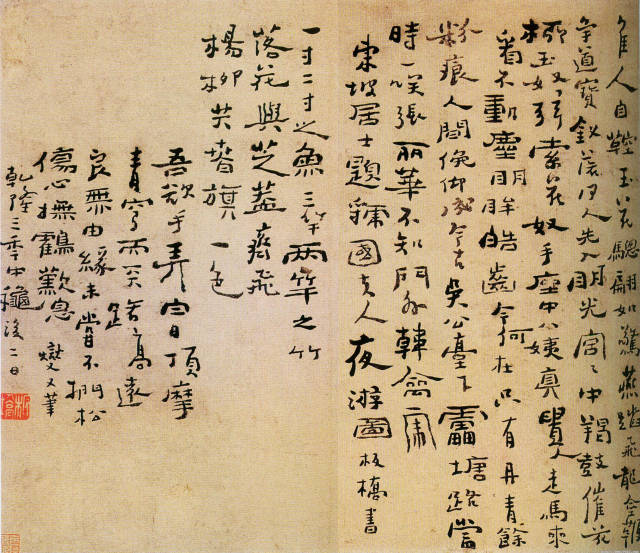 佳人自鞚玉花驄翩如驚燕蹴飛龍金鞭
爭道寶釵落何人先入明光宮宮中羯鼓催花
柳玉奴弦索花奴手座中八姨真貴人走馬來
看不動塵明眸皓齒今何在只有丹青餘
粉痕人間俛仰成今古吳公臺下雷塘路當
時一笑張麗華不知門外韓禽虎
東坡居士題虢國夫人夜游圖板橋書
一寸二寸之魚三竿兩竿之竹
落花與芝蓋齊飛
楊柳共春旗一色
吾欲手弄白日頂摩
青穹而天路高遠
良無由緣未嘗不捫松
傷心撫鶴歎息 燮又筆
乾隆三年中龝後二日